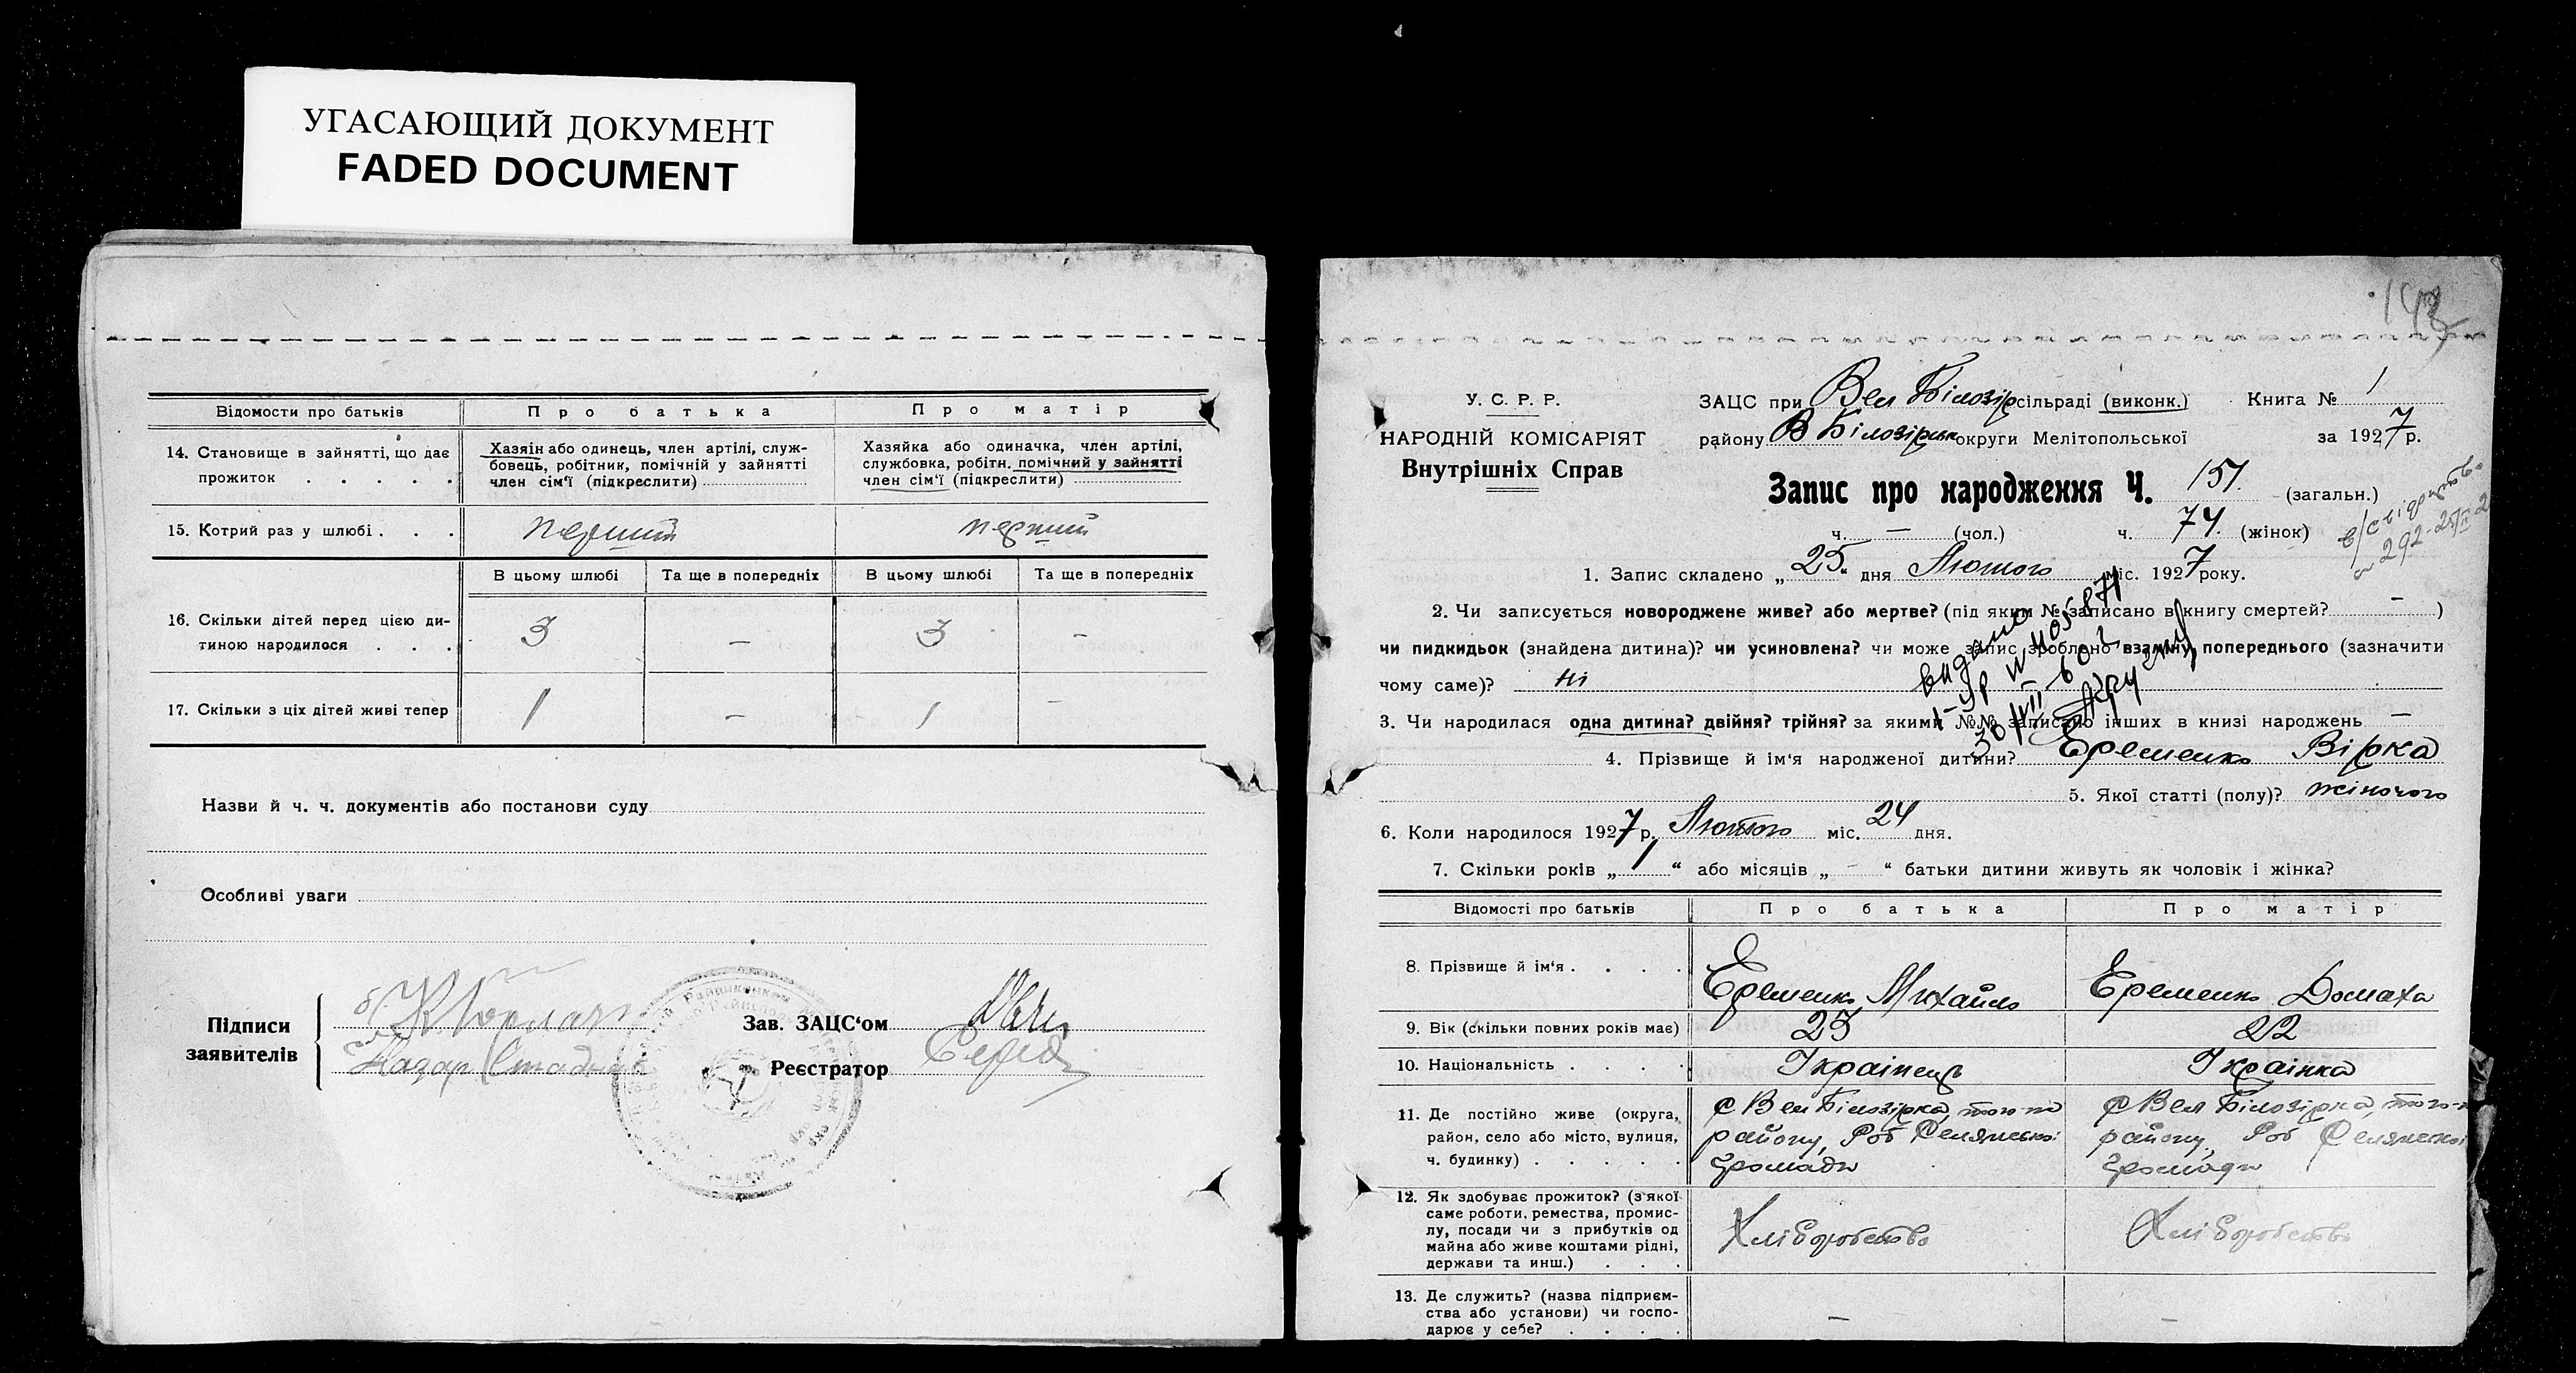 УГАСАЮЩИЙ ДОКУМЕНТ
FADED DOCUMENT
Відомости про батьків Про батька Про матір
14. Становище в зайнятті, що дає прожиток . . . . .
Хазяін або одинець, член артілі, служ-
бовець, робітник, помічній у зайнятті
член сім'ї (підкреслити)
Хазяйка або одиначка, член артілі,
службовка, робітн. помічний у зайнятті
член сім'ї (підкреслити)
15. Котрий раз у шлюбі . . . перший перший
В цьому шлюбі Та ще в попередніх В цьому шлюбі Та ще в попередніх
16. Скільки дітей перед цією ди-
тиною народилося . . . 3 — 3 —
17. Скільки з ціх дітей живі тепер 1 — 1 —
Назви й ч. ч. документів або постанови суду
Особливі уваги
Підписи
заявителів
Назар
Зав. ЗАЦС'ом
Реєстратор
143
У. С. Р. Р.
НАРОДНІЙ КОМІСАРІЯТ
Внутрішніх Справ
ЗАЦС при Вел Білозір сільраді (виконк.) Книга № 1
району В Білозірськ округи Мелітопольської за 1927 р.
Запис про народження Ч. 151. (загальн.)
ч. — (чол.) ч. 74. (жінок)
1. Запис складено „25“ дня Лютого міс. 1927 року.
2. Чи записується новороджене живе? або мертве? (під яким № записано в книгу смертей? — )
чи пидкидьок (знайдена дитина)? чи усиновлена? чи може запис зроблено взаміну попереднього (зазначити
чому саме)? ні
видано
3. Чи народилася одна дитина? двійня? трійня? за якими №№ записано інших в книзі народжень —
4. Прізвище й ім'я народженої дитини? Еременко Вірка
5. Якої статті (полу)? жіночого
6. Коли народилось 1927 р. Лютого міс. 24 дня.
7. Скільки років „1“ або місяців „ — “ батьки дитини живуть як чоловік і жінка?
Відомості про батьків Про батька Про матір
8. Прізвище й ім'я . . . . Еременко Михайло Еременко Домаха
9. Вік (скільки повних років має) 23 22
10. Національність . . . . Українець Українка
11. Де постійно живе (округа,
район, село або місто, вулиця,
ч. будинку) . . . . .
с Вел Білозірка, того-ж
району, Роб Селянської
громади
с Вел Білозірка, того-ж
району, Роб Селянської
громади
12. Як здобуває прожиток? (з якої
саме роботи, ремества, промис-
лу, посади чи з прибутків од
майна або живе коштами рідні,
держави та инш.) . . .
Хліборобство Хліборобство
13. Де служить? (назва підприєм-
ства або установи) чи госпо-
дарює у себе? . . . .
— —